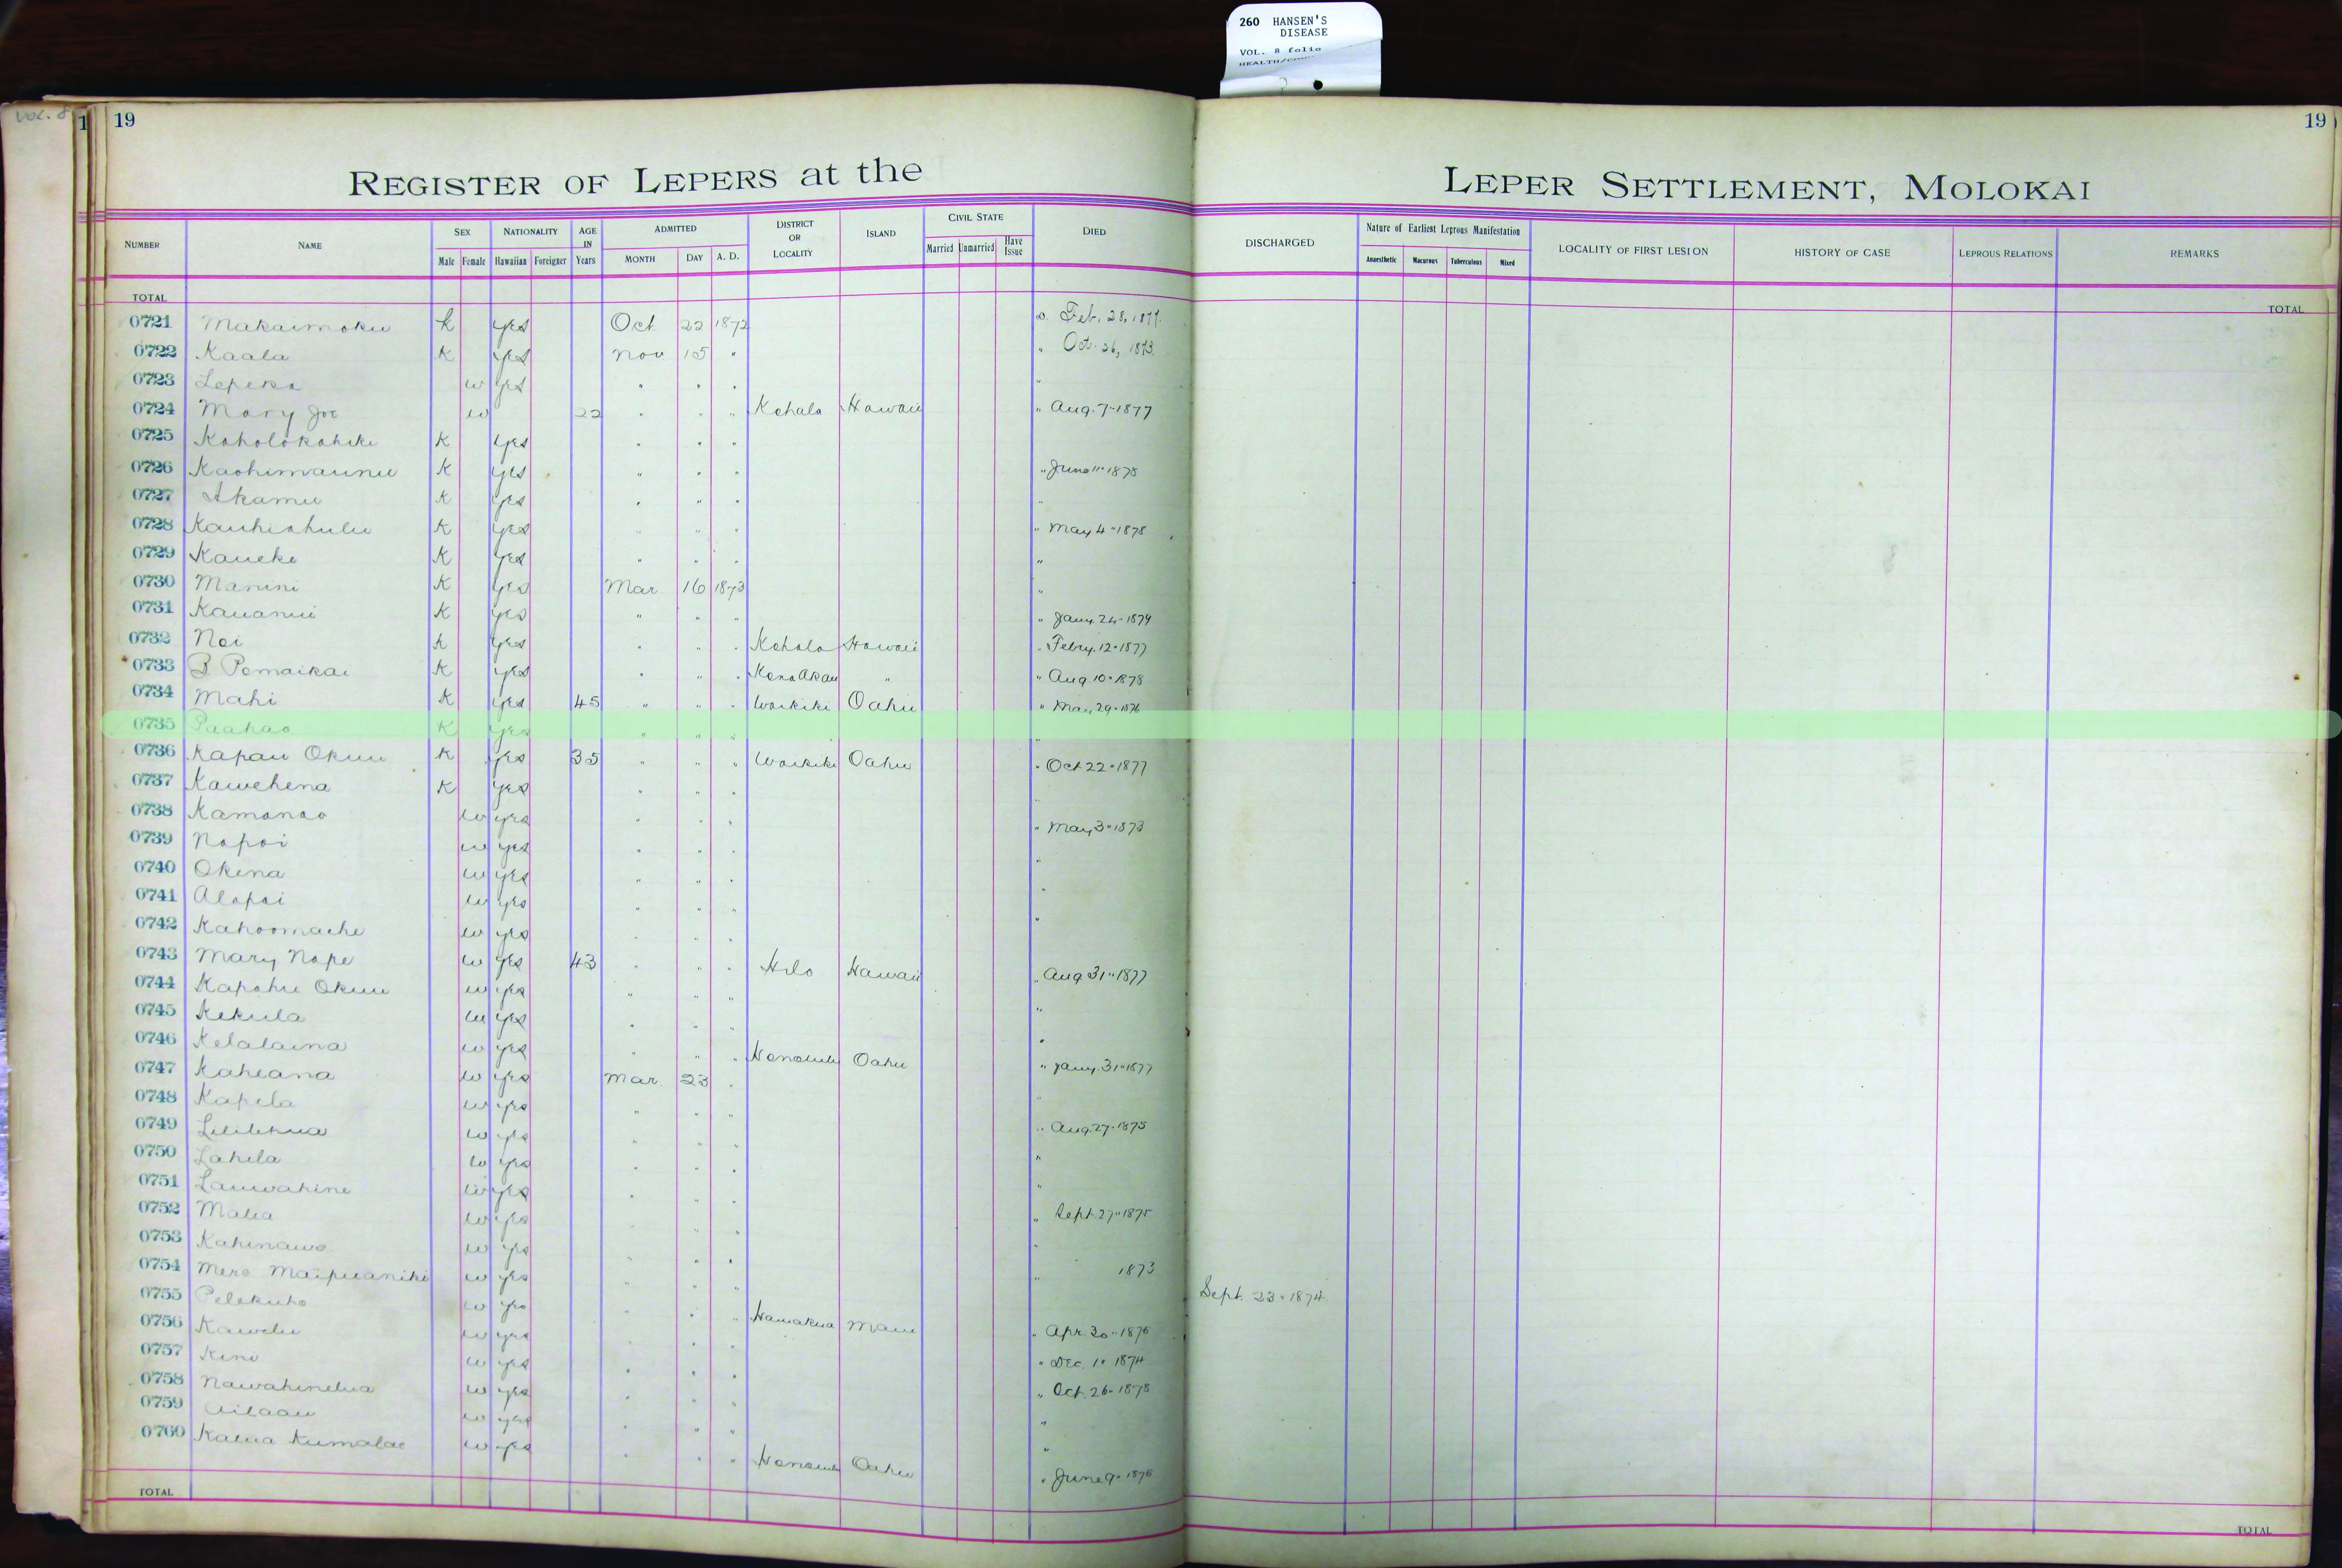 260 HANSEN'S
DISEASE
VOL. 8 folio
Vol. 8
1 19
19
REGISTER OF LEPERS at the LEPER SETTLEMENT, MOLOKAI
NUMBER NAME SEX Male Female NATIONALITY Hawaiian Foreigner AGE IN Years ADMITTED MONTH DAY A. D. DISTRICT OR LOCALITY ISLAND CIVIL STATE Married Unmarried Have Issue DIED DISCHARGED Nature of Earliest Leprous Manifestation Anaesthetic Macurous Tuberculous Mixed LOCALITY OF FIRST LESION HISTORY OF CASE LEPROUS RELATIONS REMARKS
TOTAL TOTAL
0721 Makaimoku k yes Oct 22 1872 D. Feb. 28, 1877.
0722 Kaala K yes Nov 15 " " Oct. 26, 1873.
0723 Lepeka w yes " " " "
0724 Mary Joe w 22 " " " Kohala Hawaii " Aug. 7-1877
0725 Koholokahiki K yes " " "
0726 Kaohimaunu K yes " " " " June 11-1878
0727 Akamu K yes " " " "
0728 Kauhiahulu K yes " " " " May 4-1878
0729 Kaueke K yes " " " "
0730 Manini K yes Mar 16 1873 "
0731 Kauanui K yes " " " " Jany. 24-1879
0732 Noi K yes " " " Kohala Hawaii " Febry. 12-1877
0733 B Pomaikai K yes " " " Kona Akau " " Aug 10-1878
0734 Mahi K yes 45 " " " Waikiki Oahu " May 29-1876
0735 Paahao K yes " " " "
0736 Kapau Okuu K yes 35 " " " Waikiki Oahu " Oct 22-1877
0737 Kawehena K yes " " " "
0738 Kamanao w yes " " " " May 3-1873
0739 Napoi w yes " " " "
0740 Okina w yes " " " "
0741 Alapai w yes " " " "
0742 Kahoomache w yes " " "
0743 Mary Nape w yes 43 " " " Hilo Hawaii " Aug 31-1877
0744 Kapahu Okuu w yes " " " "
0745 Kekula w yes " " " "
0746 Kelalaina w yes " " " Honolulu Oahu " Jany. 31-1877
0747 Kaheana w yes Mar. 23 " "
0748 Kapela w yes " " " " Aug. 27-1875
0749 Lililehua w yes " " " "
0750 Lahela w yes " " " "
0751 Lauwahine w yes " " " " Sept. 27-1875
0752 Malia w yes " " " "
0753 Kahinawe w yes " " " " 1873
0754 Mere Maipuaniki w yes " " " Sept. 23-1874
0755 Pelekuho w yes " " " Hamakua Maui " Apr. 30-1876
0756 Kawelu w yes " " " Dec. 1-1874
0757 Kini w yes " " " Oct. 26-1878
0758 Nawahinelua w yes " " " "
0759 Ailaau w yes " " " "
0760 Kalua Kumalae w yes " " " Honolulu Oahu " June 9-1876
TOTAL TOTAL